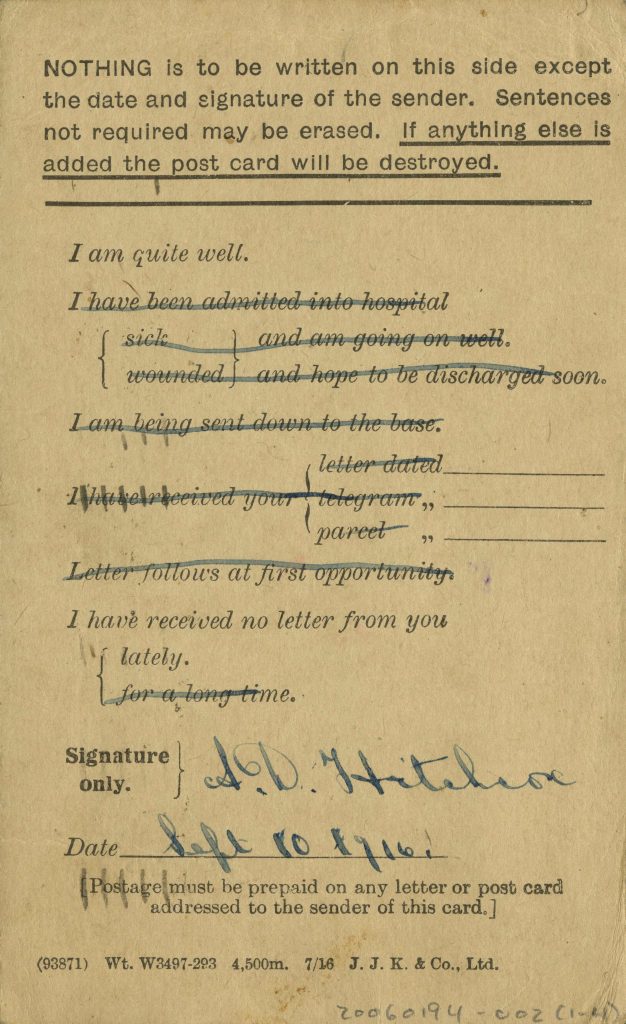 NOTHING is to be written on this side except
the date and signature of the sender. Sentences
not required may be erased. If anything else is
added the post card will be destroyed.
I am quite well.
I have been admitted into hospital
sick and am going on well.
wounded and hope to be discharged soon.
I am being sent down to the base.
letter dated
I have received your telegram „
parcel „
Letter follows at first opportunity.
I have received no letter from you
lately.
for a long time.
Signature
only. A.D. Hitchcox
Date Sept 10 1916.
[Postage must be prepaid on any letter or post card
addressed to the sender of this card.]
(93871) Wt. W3497-293 4,500m. 7/16 J. J. K. & Co., Ltd.
20060194-002 (1-4)